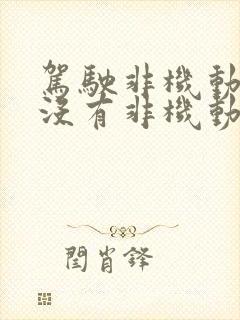 駕駛非機動
沒有非機動
閆肖鋒